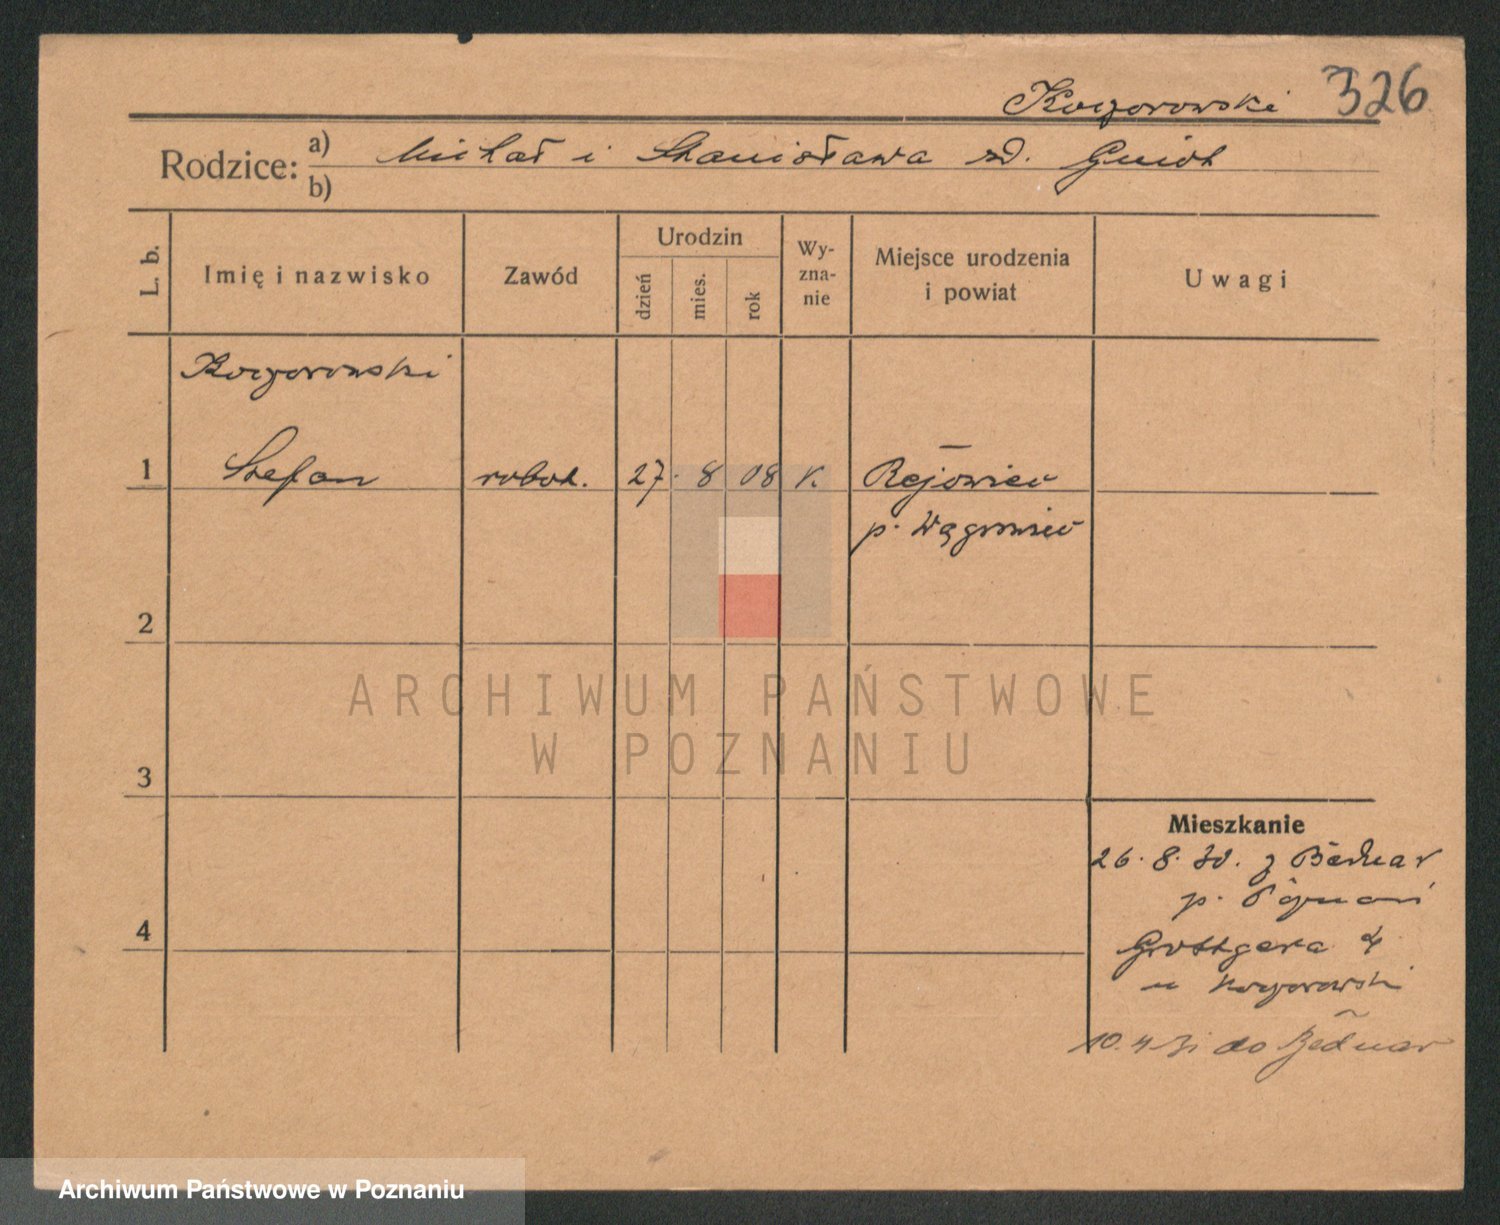 Koczorowski 326
Rodzice: a) Michał i Stanisława zd. Gniot
b)
L. b. Imię i nazwisko Zawód Urodzin dzień mies. rok Wy-zna-nie Miejsce urodzenia i powiat Uwagi
Koczorowski
1 Stefan robot. 27. 8 08 k. Rejowiec
p. Wągrowiec
2
ARCHIWUM PAŃSTWOWE
W POZNANIU
3
Mieszkanie
26. 8. 30. z Bednar
p. Poznań
4
Grottgera 4
u Koczorowski
10. 4 31 do Bednar
Archiwum Państwowe w Poznaniu